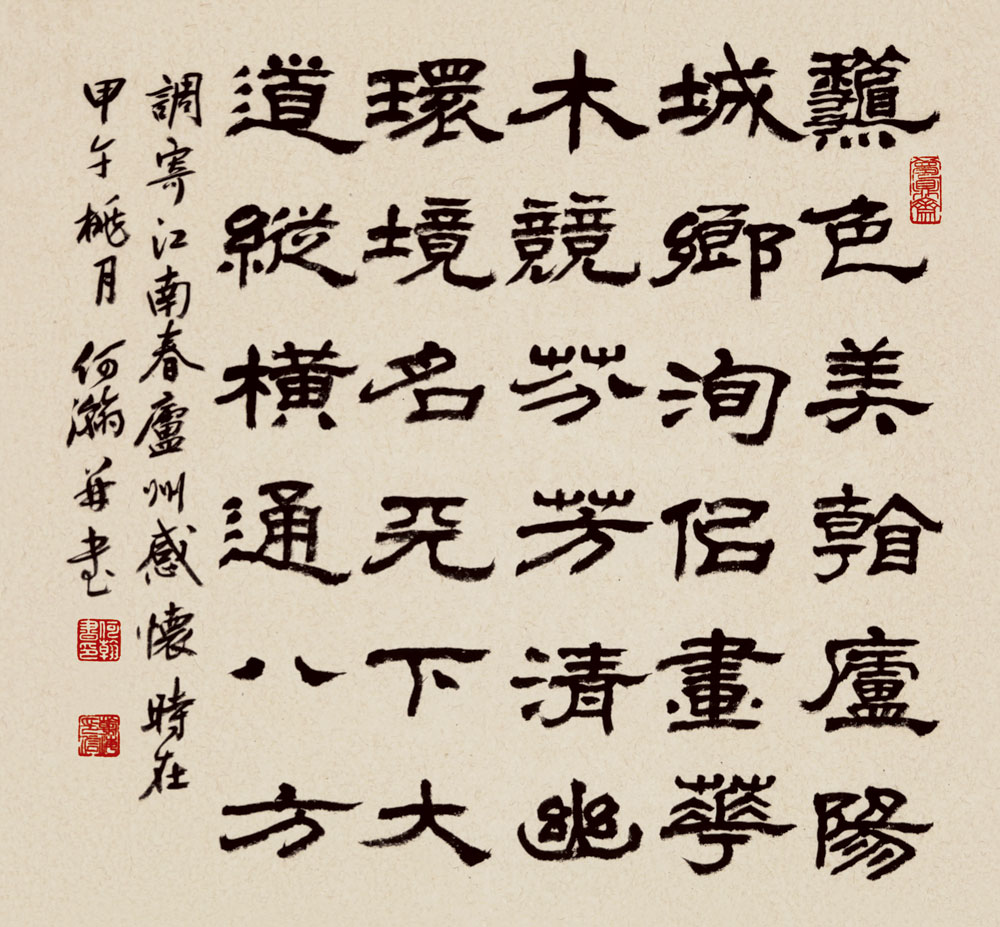 色美廬陽
城鄉洵佀畫華
木競芬芳清幽
環境名天下大
道縱橫通八方
調寄江南春廬州感懷時在
甲午桃月何瀚華書